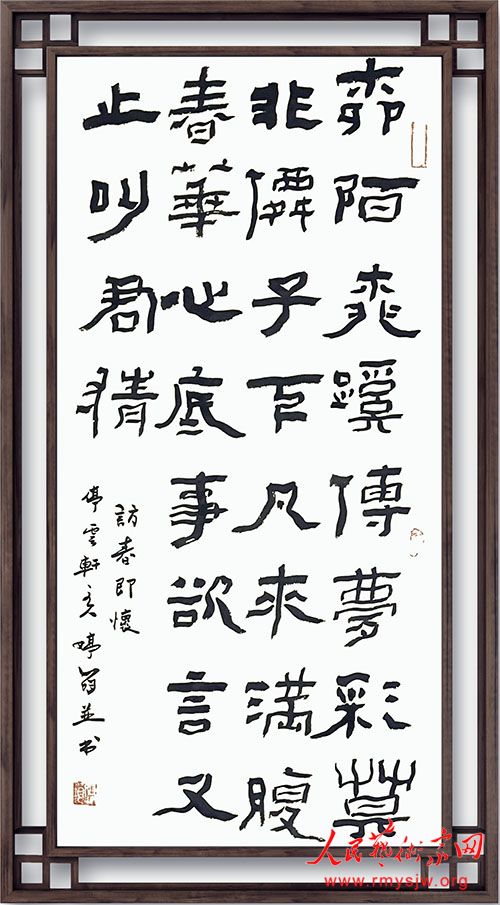 柳陌桃蹊傳夢彩莫
非僊子下凡來滿腹
春華心底事欲言又
止叫君猜
訪春即懷
停雲軒主婷並书
人民藝術家网
www.rmysjw.org